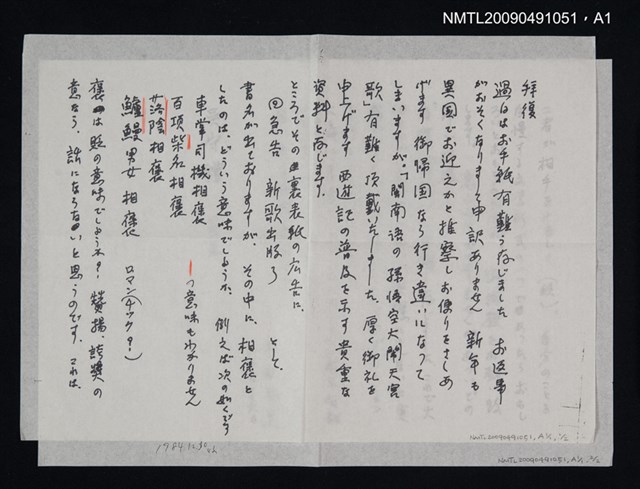 NMTL20090491051，A1
拝復
過日はお手紙有難う存じました お返事
がおそくなりまして申訳ありません 新年も
異国でお迎えかと推察しお便りをさしあ
げます 御帰国なら行き違いになって
しまいますが、「閩南語の孫悟空大鬧天宮
歌」有難く頂戴いたしました 厚く御礼を
申上げます 西遊記の普及を示す貴重な
資料と存じます。
ところでその裏表紙の広告に
回急告 新歌出版了 として、
書名が出ておりますが、その中に、相褒と
したのは、どういう意味でしょうか、例えば次の如くです
車掌司機相褒 つ意味も少かりません
百項柴名相褒
茖陰相褒
鱸鰻男女相褒 ロマン(チック?)
褒は貶の意味でしょうか? 賛揚、誇奨の
意なら、話にならないと思うのです。これは、
1984.12.30
NMTL20090491051, A1, 1/2
NMTL20090491051, A1, 2/2